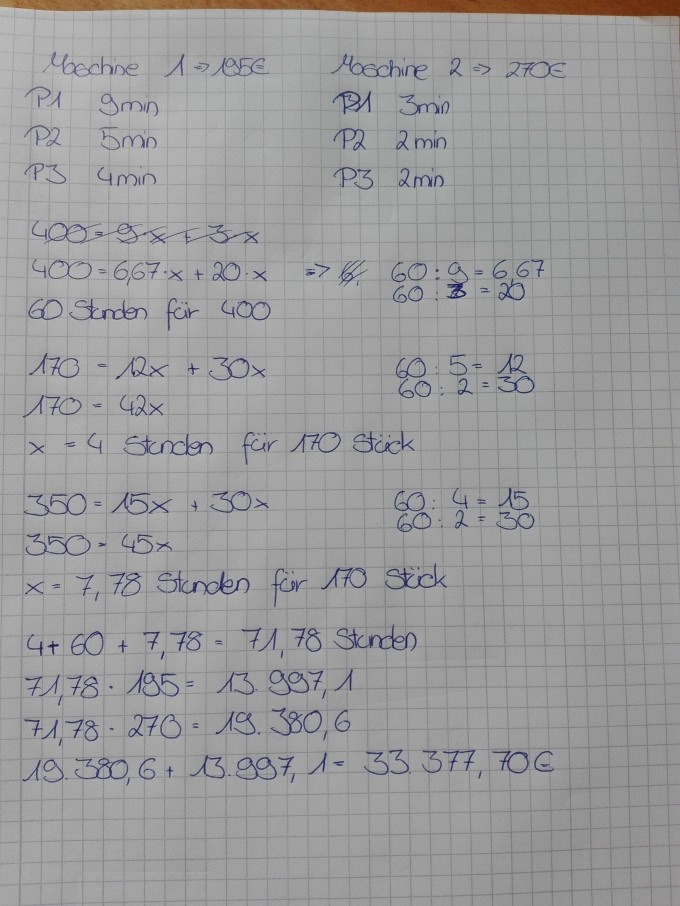 Maschine 1 => 195€ Maschine 2 => 270€
P1 9min P1 3min
P2 5min P2 2min
P3 4min P3 2min
400 = 9x + 3x
400 = 6,67·x + 20·x => 60 : 9 = 6,67
60 : 3 = 20
60 Stunden für 400
170 = 12x + 30x 60 : 5 = 12
60 : 2 = 30
170 = 42x
x = 4 Stunden für 170 Stück
350 = 15x + 30x 60 : 4 = 15
60 : 2 = 30
350 = 45x
x = 7,78 Stunden für 170 Stück
4 + 60 + 7,78 = 71,78 Stunden
71,78 · 195 = 13.997,1
71,78 · 270 = 19.380,6
19.380,6 + 13.997,1 = 33.377,70€